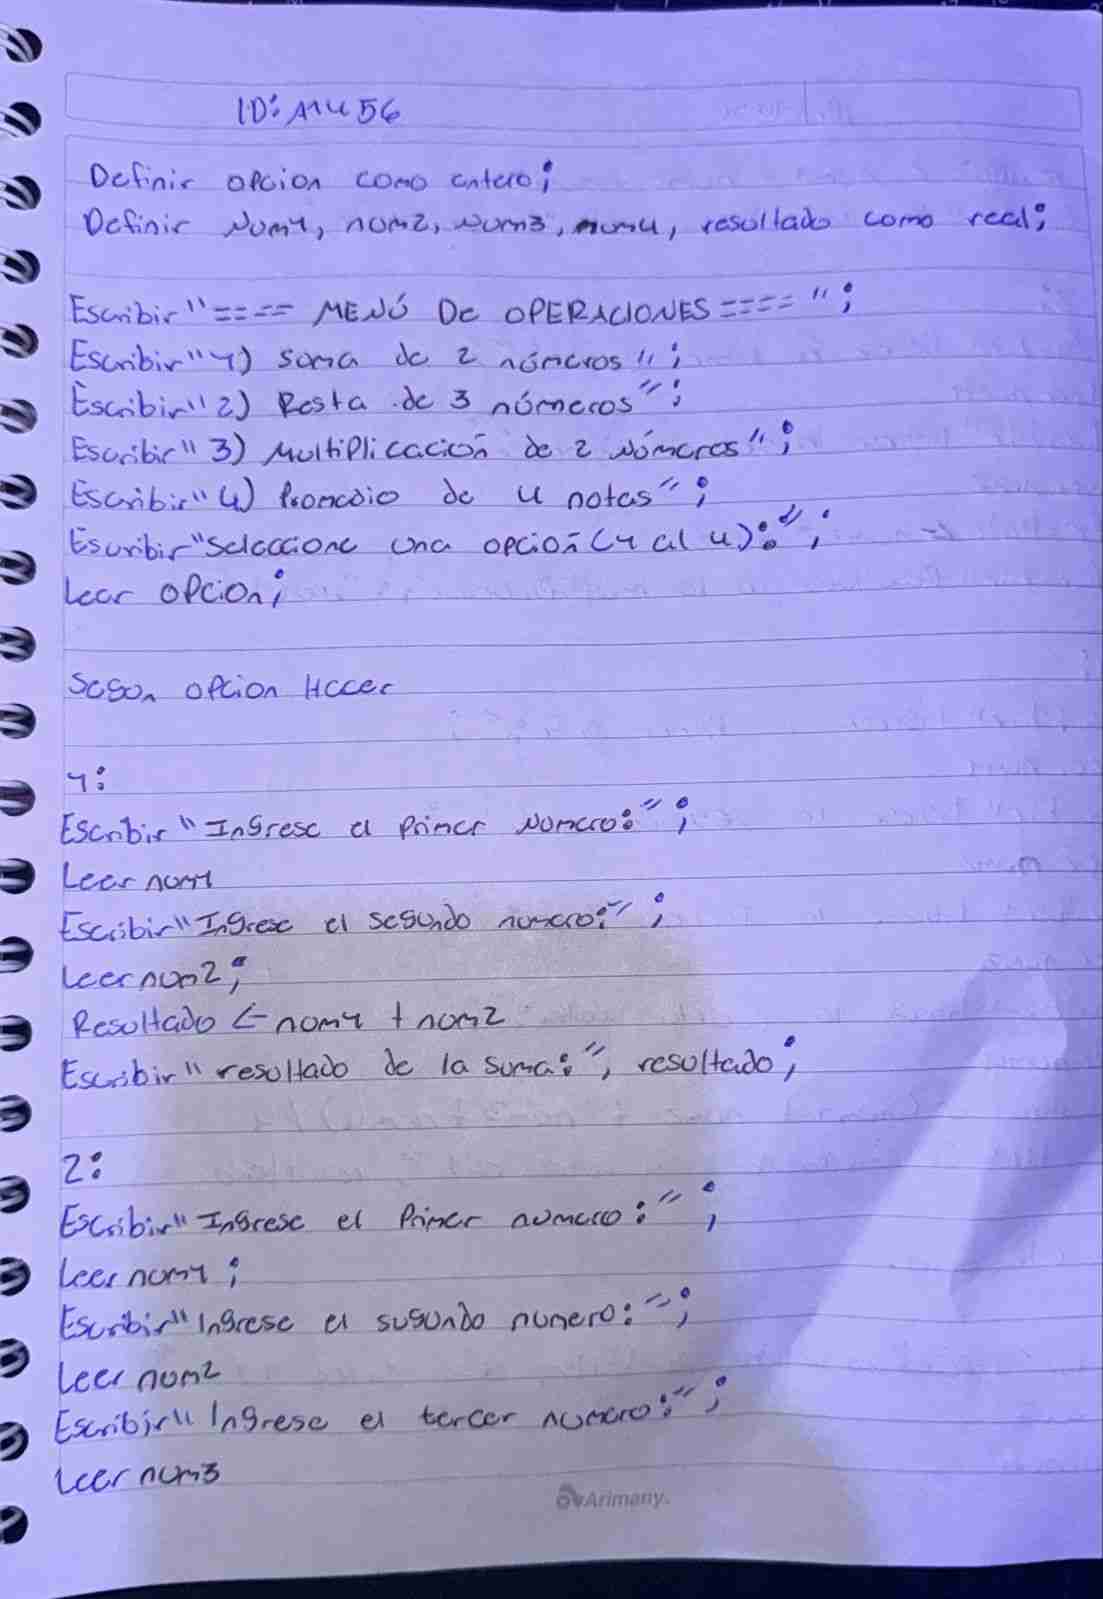 ID: A1456
Definir opcion como entero;
Definir Num1, num2, Num3, num4, resultado como real;
Escribir "==== MENÚ De OPERACIONES ==== ";
Escribir "1) suma de 2 números ";
Escribir "2) Resta de 3 números";
Escribir "3) Multiplicación de 2 Números";
Escribir "4) Promedio de 4 notas";
Escribir "Seleccione una opción (1 al 4):";
Leer opcion;
Segun opcion Hacer
1:
Escribir "Ingrese el primer Numero:";
Leer num1
Escribir "Ingrese el segundo numero:";
Leer num2;
Resultado <- num1 + num2
Escribir "resultado de la suma:", resultado;
2:
Escribir "Ingrese el primer numero:";
Leer num1;
Escribir "Ingrese el sugundo numero:";
Leer num2
Escribir "Ingrese el tercer numero:";
Leer num3
Arimany.